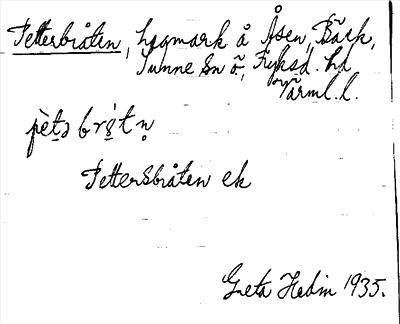 Petterbråten, hagmark å Åsen, Bäck,
Sunne sn ö, Fryksd. hd
Värml. l.
pèt̯ə brs̯̀t n̥
Pettersbråten ek
Greta Hedin 1935.